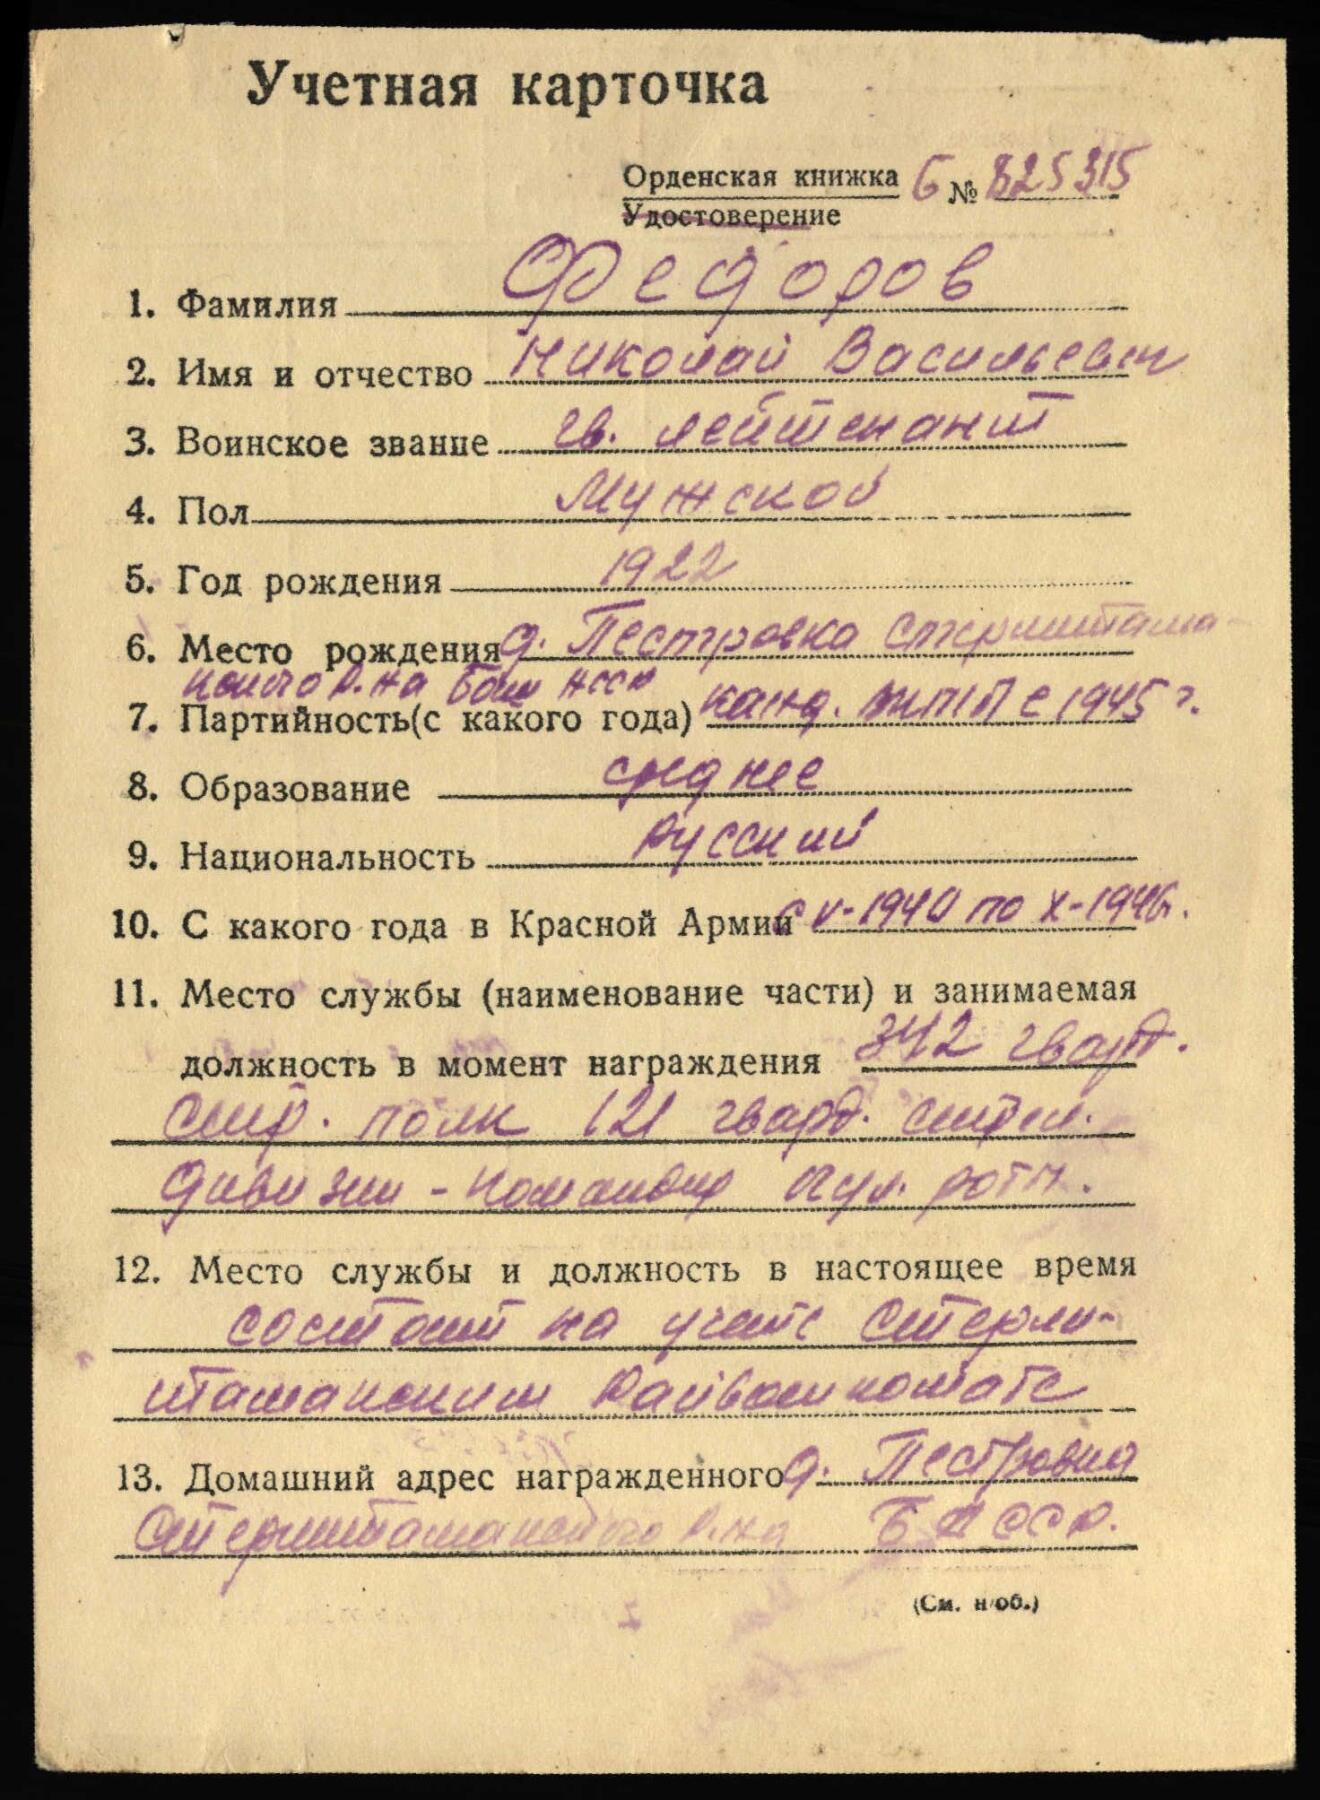 Учетная карточка
Орденская книжка Б № 825315
Удостоверение
1. Фамилия Федоров
2. Имя и отчество Николай Васильевич
3. Воинское звание гв. лейтенант
4. Пол Мужской
5. Год рождения 1922
6. Место рождения д. Пестровка Стерлитама-
кского р.на Баш АССР
7. Партийность(с какого года) канд. ВКП/б с 1945 г.
8. Образование среднее
9. Национальность Русский
10. С какого года в Красной Армии с V-1940 по X-1946г.
11. Место службы (наименование части) и занимаемая
должность в момент награждения 342 гвард.
стр. полк 121 гвард. стрел.
дивизии - командир пул. роты.
12. Место службы и должность в настоящее время
состоит на учете Стерли-
тамакским Райвоенкомате
13. Домашний адрес награжденного д. Пестровка
Стерлитамакского р.на БАССР.
(См. н/об.)